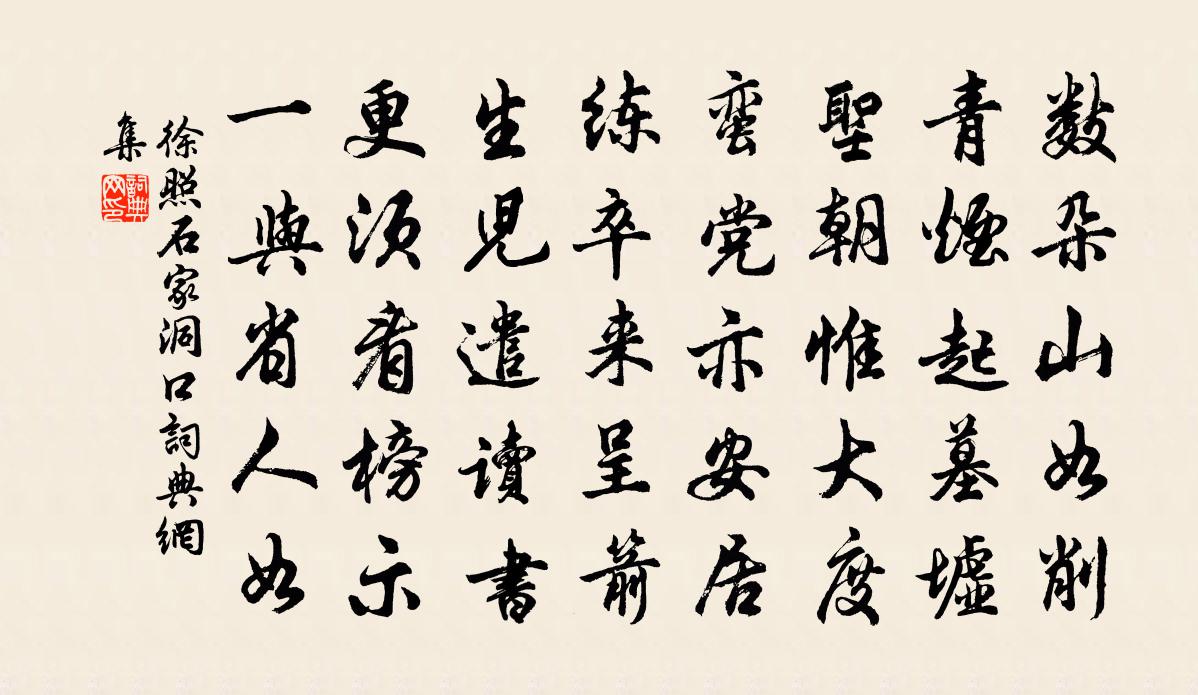 数朵山如削
青煙起墓墟
聖朝惟大度
蛮党亦安居
练卒来呈箭
生児遣讀書
更须看榜示
一與省人如
徐照石家洞口詞典網
集
詞典
网印